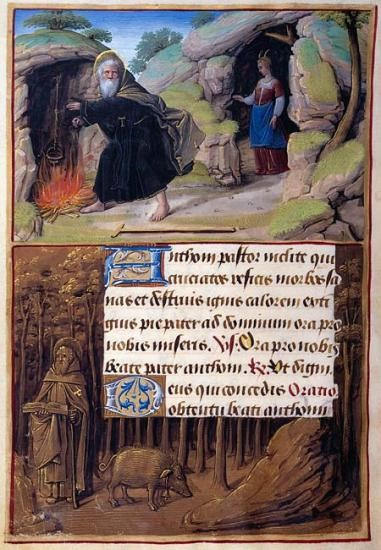 Anthoni pastor inclite qui
cruciatos reficis morbos sa
nas et destruis ignis calorem extin
guis pie pater ad dominum ora pro
nobis miseris. Vs. Ora pro nobis
beate pater anthoni. Rx. Ut digni.
Deus qui concedis Oratio
obtentu beati anthonii